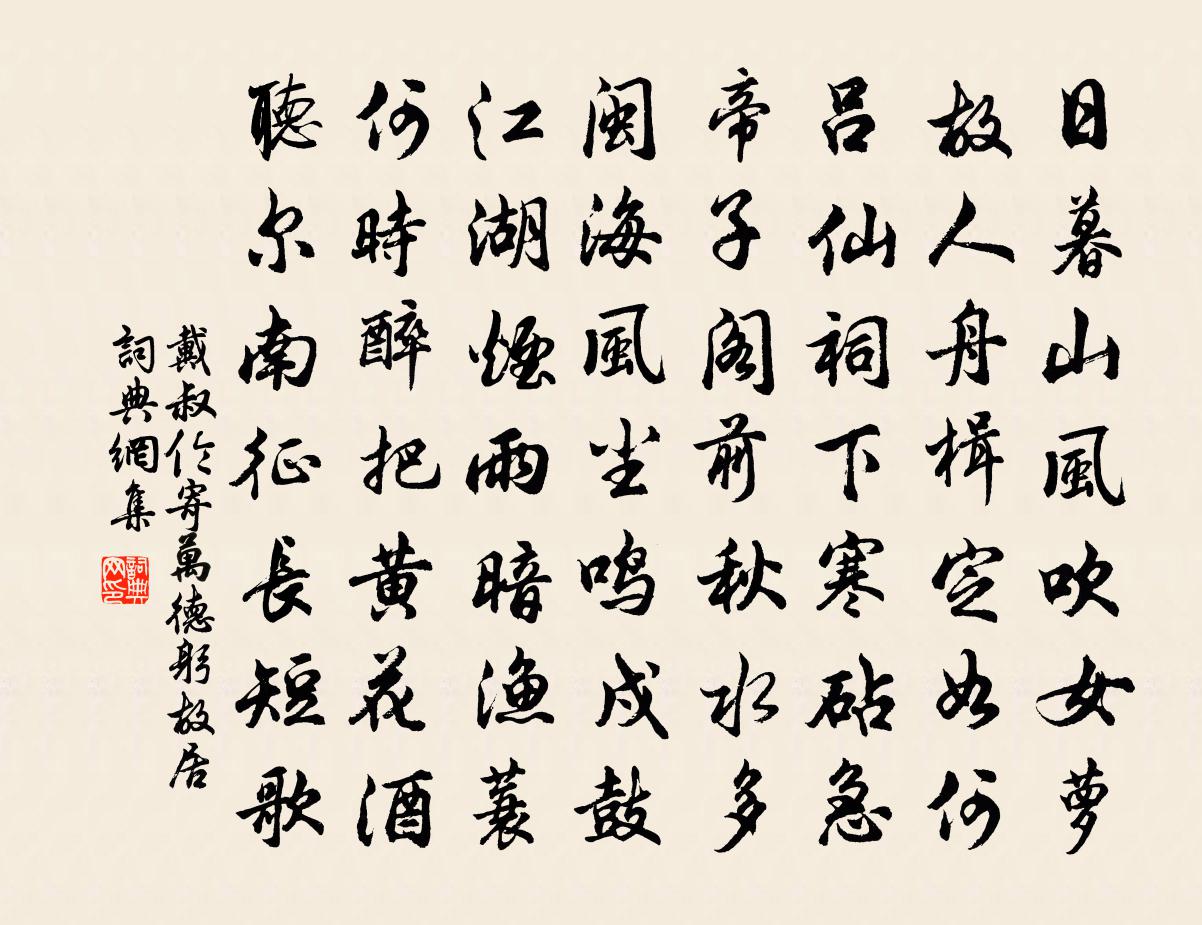 日暮山風吹女萝
故人舟楫定如何
吕仙祠下寒砧急
帝子阁前秋水多
闽海風尘鸣戍鼓
江湖煙雨暗漁蓑
何時醉把黄花酒
聽尔南征長短歌
戴叔伦寄萬德躬故居
詞典網集
詞典网印